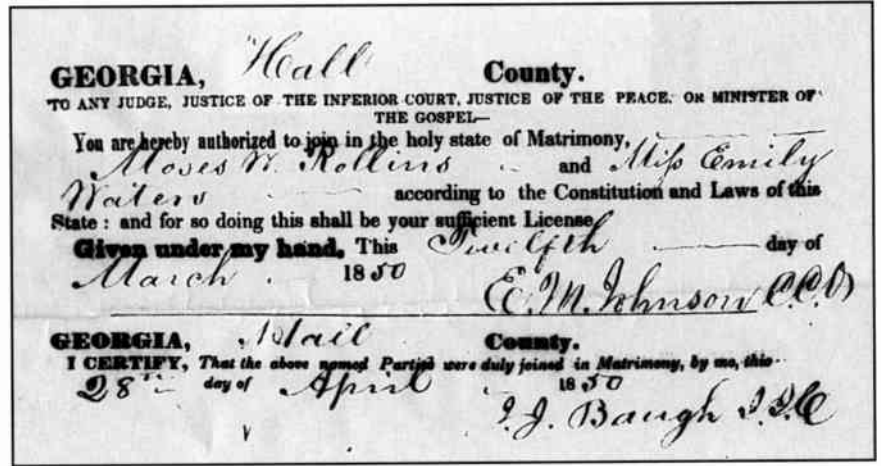 GEORGIA, Hall County.
TO ANY JUDGE, JUSTICE OF THE INFERIOR COURT, JUSTICE OF THE PEACE, OR MINISTER OF
THE GOSPEL—
You are hereby authorized to join in the holy state of Matrimony,
Moses W. Rollins and Miss Emily
Waters according to the Constitution and Laws of this
State : and for so doing this shall be your sufficient License
Given under my hand, This Twelfth day of
March 1850
E. M. Johnson C.C.O
GEORGIA, Hall County.
I CERTIFY, That the above named Parties were duly joined in Matrimony, by me, this
28th day of April 1850
J. Baugh